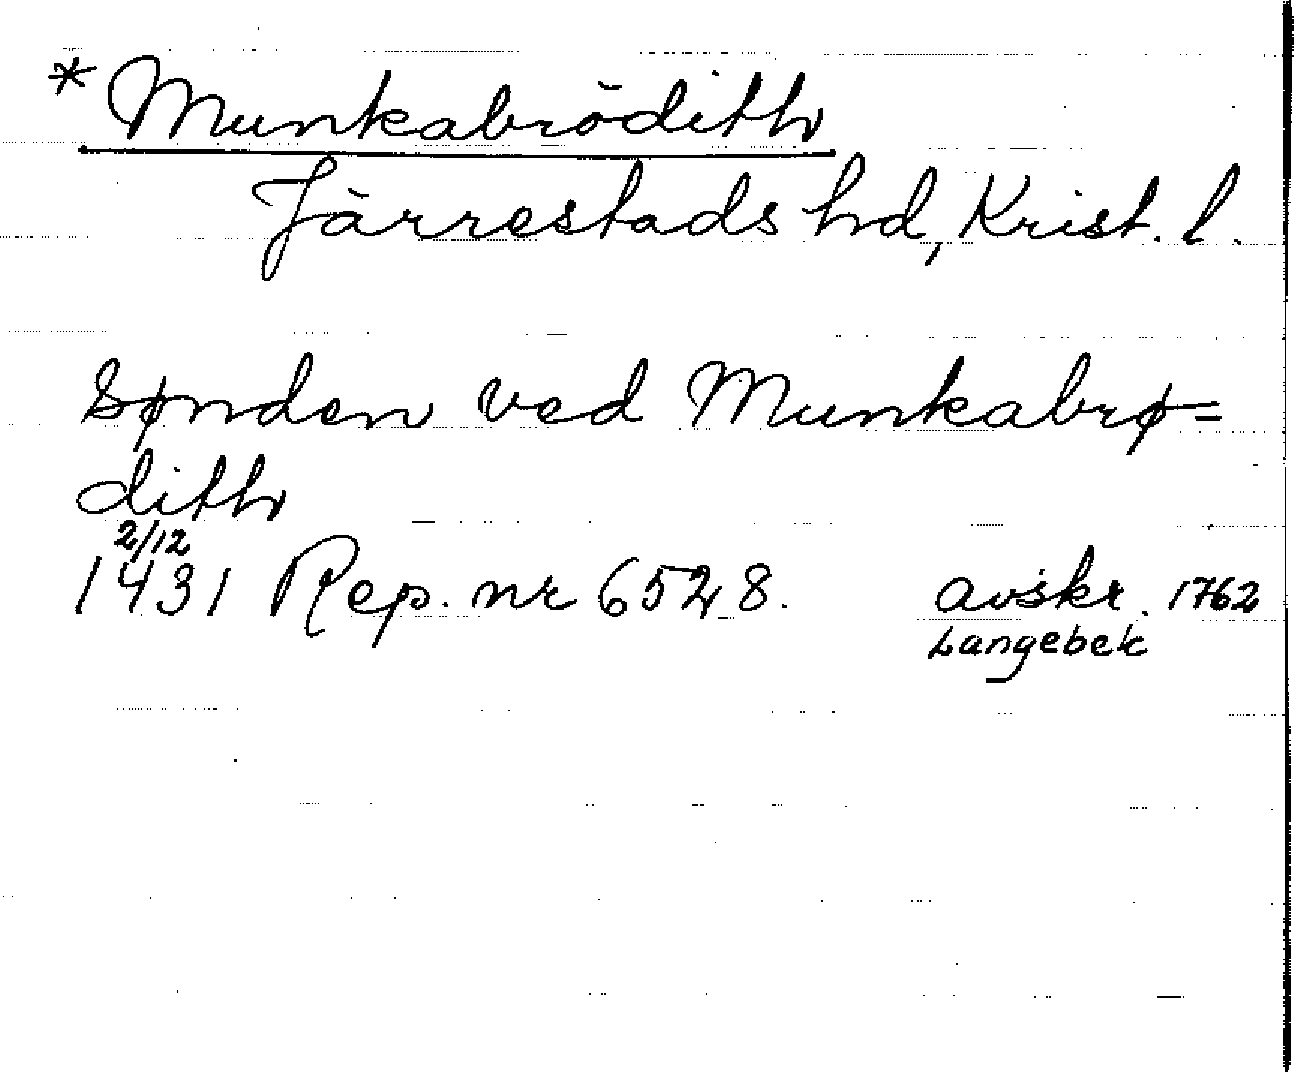 * Munkabrödith
Järrestads hd, Krist. l.
sønden ved Munkabrø=
dith
2/12
1431 Rep. nr 6528. avskr. 1762
Langebek